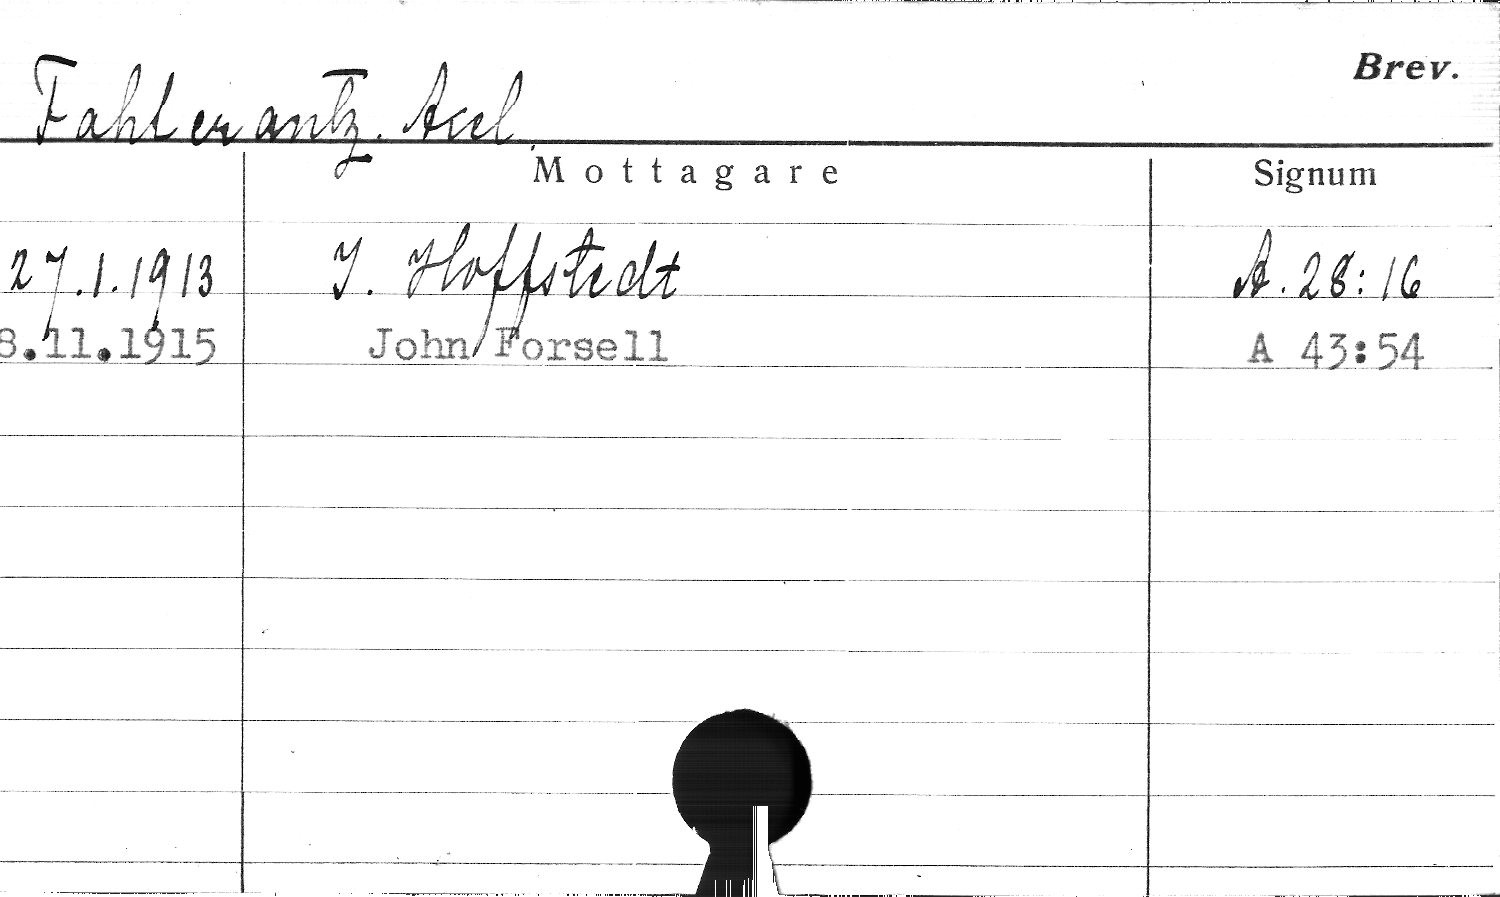 Brev.
Fahlcrantz. Axel.
Mottagare Signum
27.1.1913 I. Hoffstedt A. 28:16
8.11.1915 John Forsell A 43:54